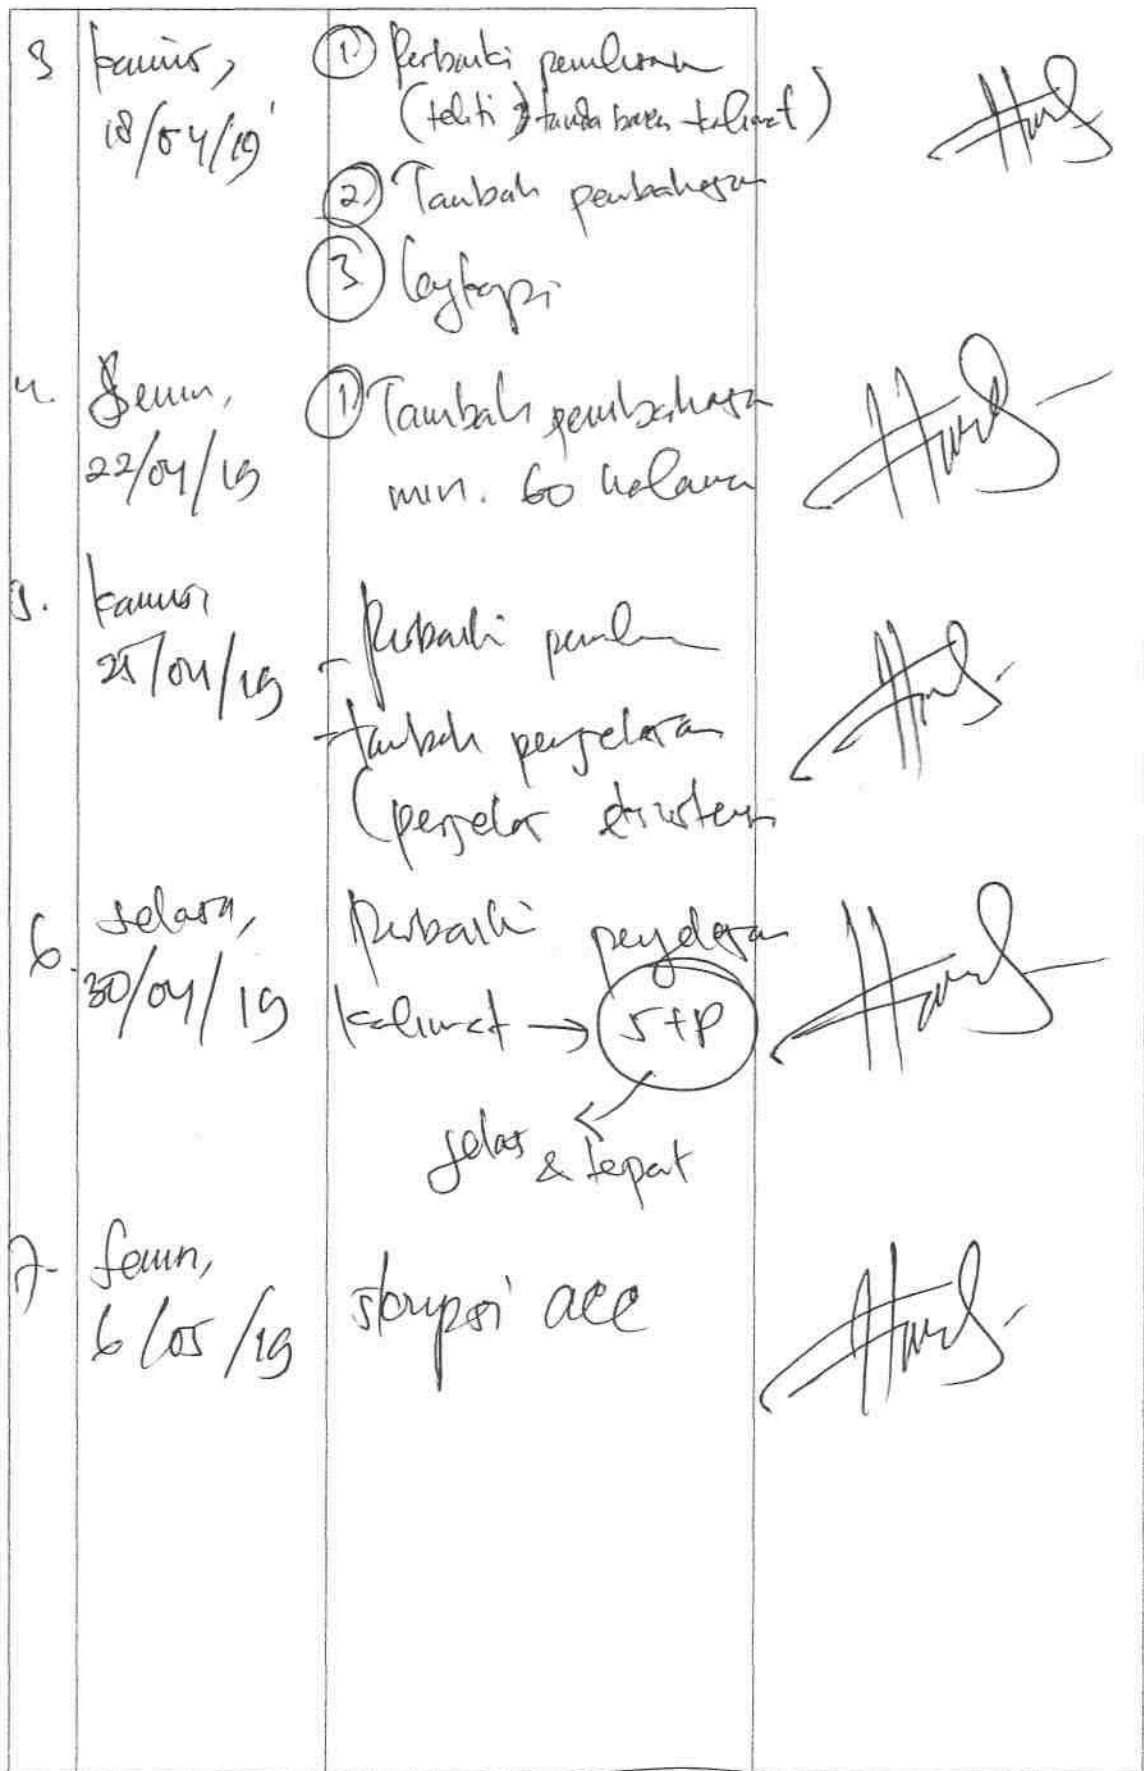 3 kamis,
18/04/19
① Perbaiki penulisan
(teliti tanda baca kalimat)
② Tambah pembahasan
③ Lengkapi
4. Senin,
22/04/19
① Tambah pembahasan
min. 60 halaman
5. kamis,
25/04/19
- Perbaiki
- tambah penjelasan
(penjelas
6. selasa,
30/04/19
Perbaiki penjelasan
kalimat → S+P
jelas & tepat
7. Senin,
6/05/19
skripsi acc